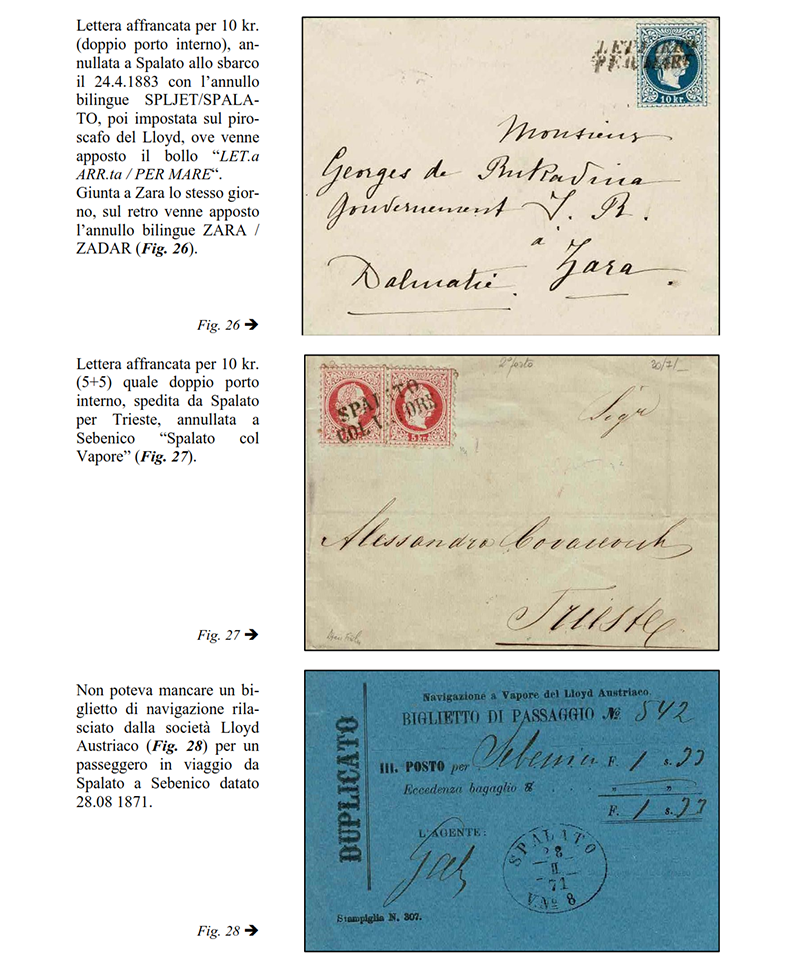 Lettera affrancata per 10 kr.
(doppio porto interno), an-
nullata a Spalato allo sbarco
il 24.4.1883 con l’annullo
bilingue SPLJET/SPALA-
TO, poi impostata sul piro-
scafo del Lloyd, ove venne
apposto il bollo “LET.a
ARR.ta / PER MARE“.
Giunta a Zara lo stesso gior-
no, sul retro venne apposto
l’annullo bilingue ZARA /
ZADAR (Fig. 26).
Fig. 26 ➔
10 kr.
Monsieur
Georges de Rukavina
Gouvernement I. R.
à
Zara
Dalmatie.
Lettera affrancata per 10 kr.
(5+5) quale doppio porto
interno, spedita da Spalato
per Trieste, annullata a
Sebenico “Spalato col
Vapore” (Fig. 27).
Fig. 27 ➔
2° porto
20/7/_
SPALATO
COL
5 kr.
Sigr
Alessandro
Trieste
Non poteva mancare un bi-
glietto di navigazione rila-
sciato dalla società Lloyd
Austriaco (Fig. 28) per un
passeggero in viaggio da
Spalato a Sebenico datato
28.08 1871.
Fig. 28 ➔
DUPLICATO
Navigazione a Vapore del Lloyd Austriaco.
BIGLIETTO DI PASSAGGIO №. 542
III. POSTO per Sebenico F. 1 s. 33
Eccedenza bagaglio
F. 1 s. 33
L'AGENTE:
SPALATO
28
II
71
V. No 8
Stampiglia N. 307.